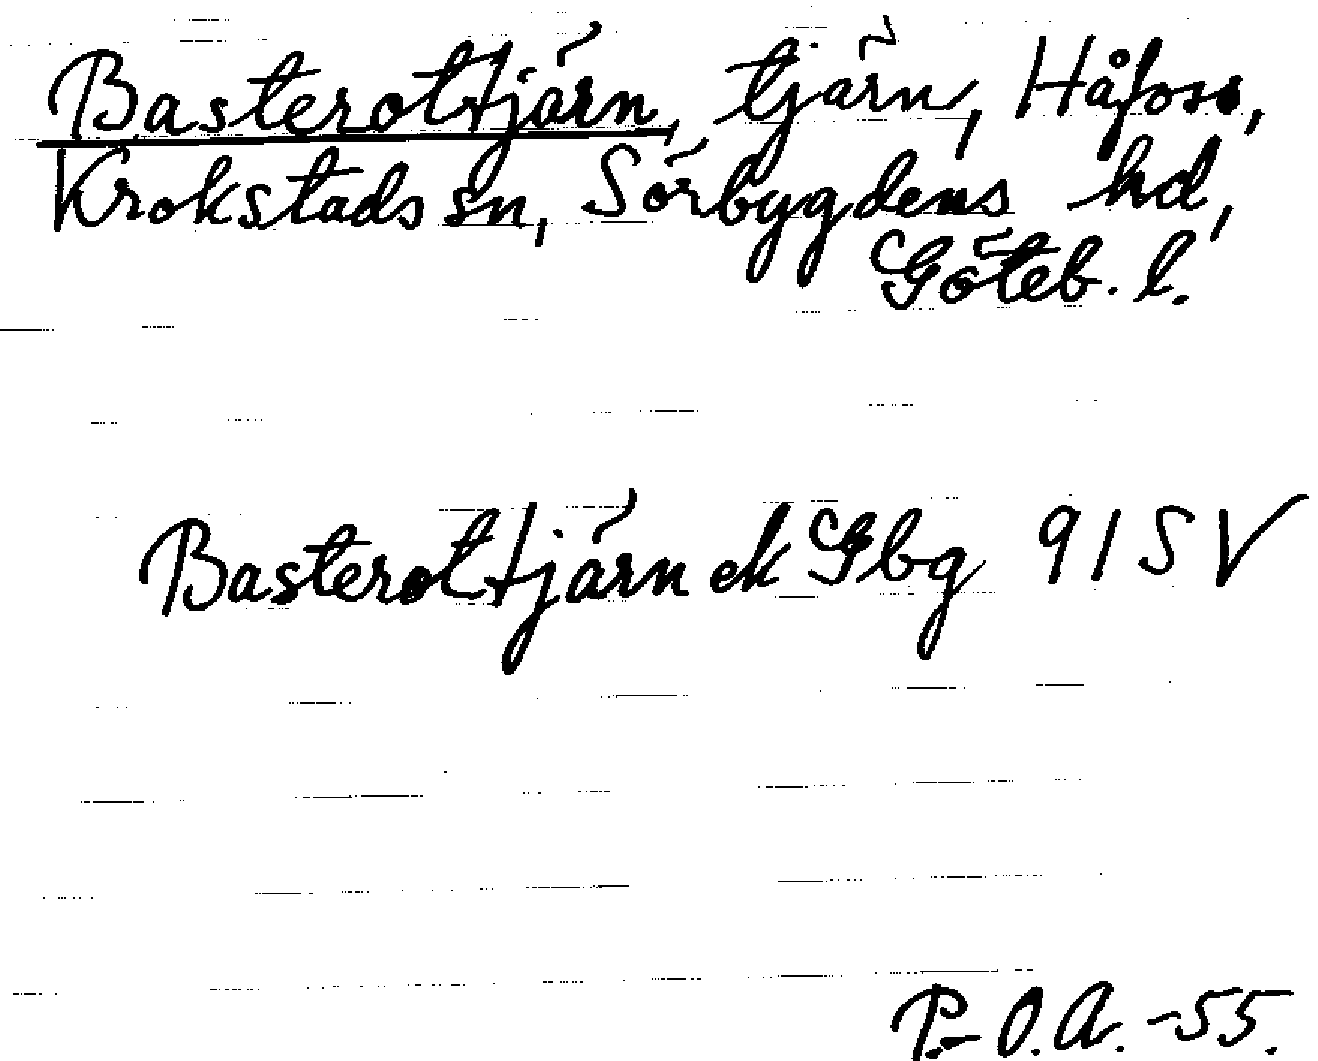 Basterottjärn, tjärn, Håfoss,
Krokstads sn, Sörbygdens hd,
Göteb. l.
Basterottjärn ek Gbg 91 SV
P.-O.A. -55.